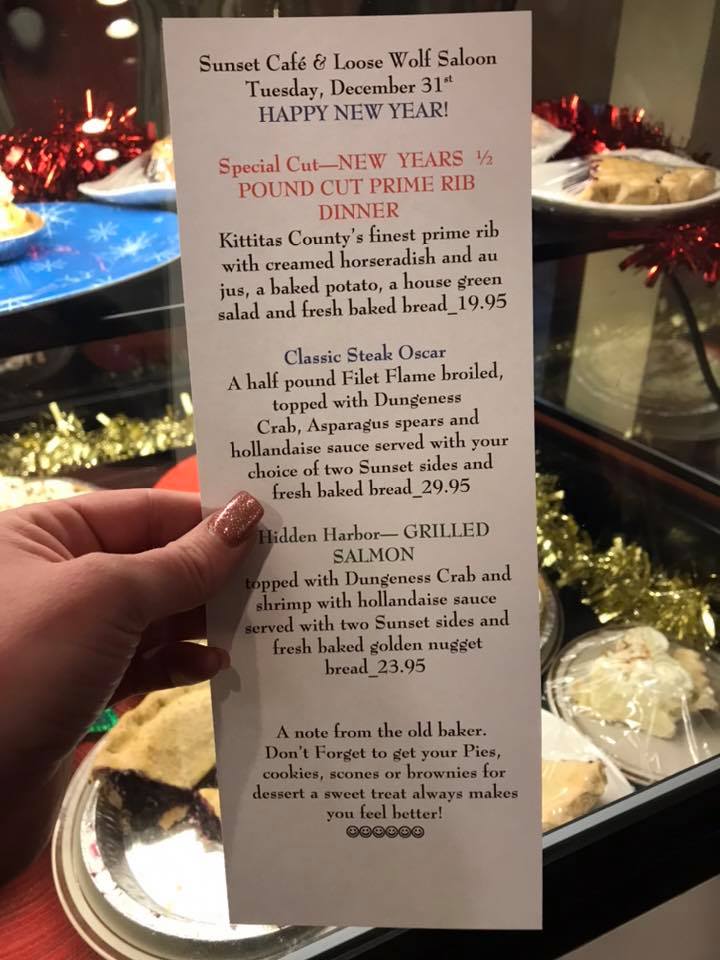 Sunset Café & Loose Wolf Saloon
Tuesday, December 31st
HAPPY NEW YEAR!
Special Cut—NEW YEARS ½
POUND CUT PRIME RIB
DINNER
Kittitas County's finest prime rib
with creamed horseradish and au
jus, a baked potato, a house green
salad and fresh baked bread_19.95
Classic Steak Oscar
A half pound Filet Flame broiled,
topped with Dungeness
Crab, Asparagus spears and
hollandaise sauce served with your
choice of two Sunset sides and
fresh baked bread_29.95
Hidden Harbor— GRILLED
SALMON
topped with Dungeness Crab and
shrimp with hollandaise sauce
served with two Sunset sides and
fresh baked golden nugget
bread_23.95
A note from the old baker.
Don't Forget to get your Pies,
cookies, scones or brownies for
dessert a sweet treat always makes
you feel better!
☺☺☺☺☺☺